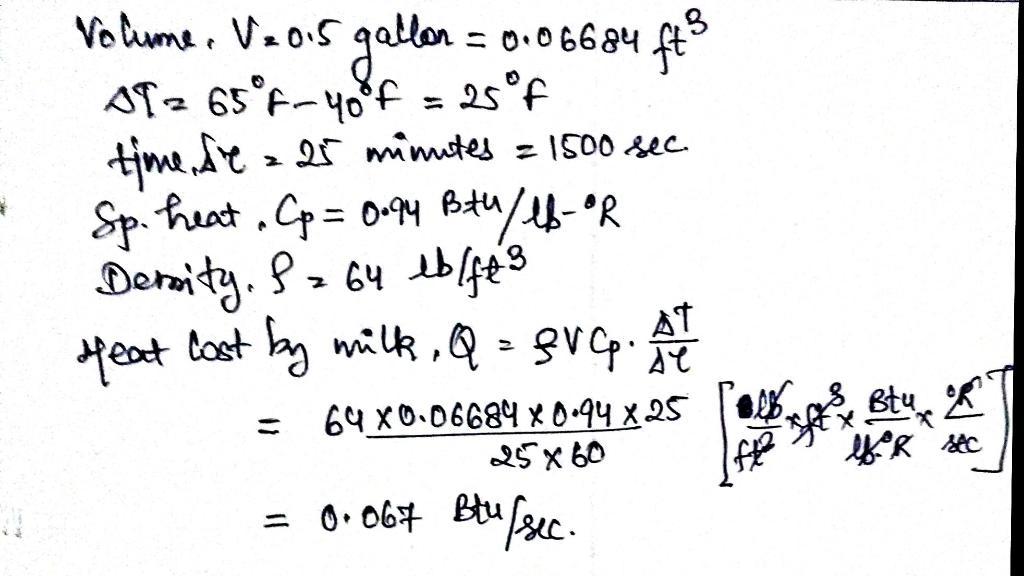 Volume, V = 0.5 gallon = 0.06684 ft³
ΔT = 65°F - 40°F = 25°F
time, Δτ = 25 minutes = 1500 sec
Sp. heat, Cp = 0.94 Btu/lb-°R
Density, ρ = 64 lb/ft³
Heat lost by milk, Q = ρVCp. ΔT/Δτ
= 64 x 0.06684 x 0.94 x 25 / 25 x 60 [lb/ft³ x ft³ x Btu/lb.°R x °R/sec]
= 0.067 Btu/sec.